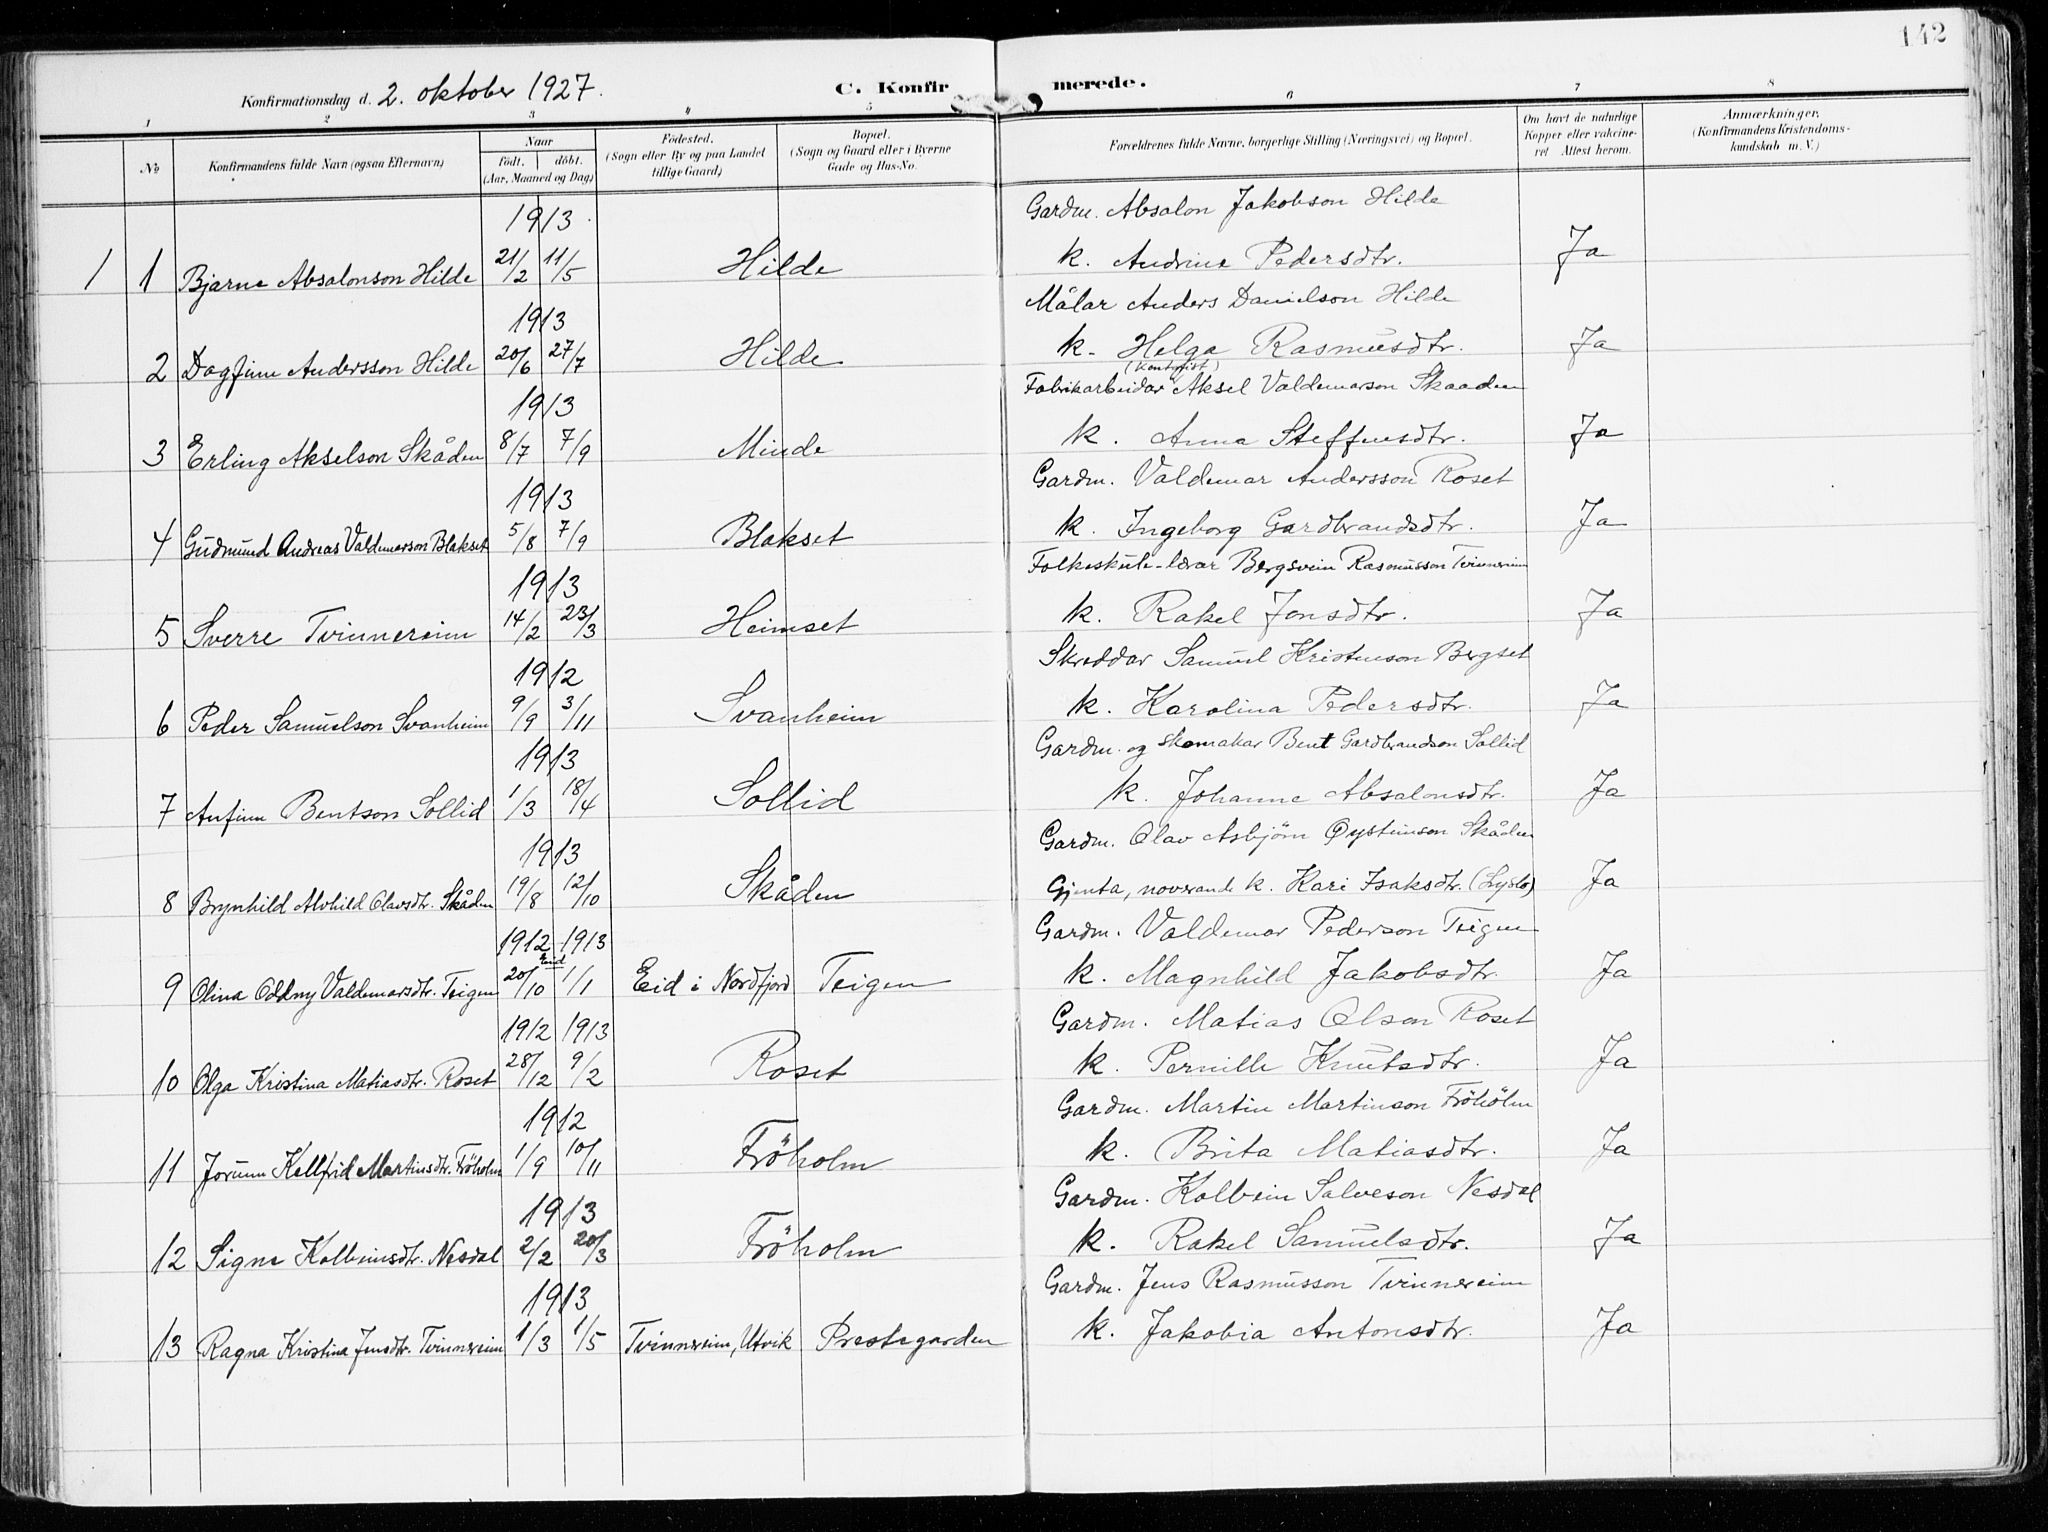 142
Konfirmationsdag d. 2. oktober 1927. C. Konfirmerede.
1 2 3 4 5 6 7 8
No Konfirmandens fulde Navn (ogsaa Efternavn) Naar født. døbt. (Aar, Maaned og Dag) Fødested. (Sogn eller By og paa Landet tillige Gaard) Bopæl. (Sogn og Gaard eller i Byerne Gade og Hus-No. Forældrenes fulde Navne, borgerlige Stilling (Næringsvei) og Bopæl. Om havt de naturlige Kopper eller vakcineret Attest herom. Anmærkninger. (Konfirmandens Kristendomskundskab m. V.)
1913. Gardm. Absalon Jakobson Hilde
1 1 Bjarne Absalonson Hilde 21/2 11/5 Hilde k. Andrine Pedersdtr. Ja
1913 Målar Anders Danielson Hilde
2 Dagfinn Andersson Hilde 20/6 27/7 Hilde k. Helga Rasmusdtr. Ja
1913 Fabrikarbeidar Aksel Valdemarson Skaaden
3 Erling Akselson Skåden 8/7 7/9 Minde k. Anna Steffensdtr. Ja
1913 Gardm. Valdemar Andersson Roset
4 Gudmund Andreas Valdemarson Blakset 5/8 7/9 Blakset k. Ingeborg Gardbrandsdtr. Ja
1913 Folkeskule-lærar Bergsvein Rasmusson Tvinnereim
5 Sverre Tvinnereim 14/2 23/3 Heimset k. Rakel Jonsdtr. Ja
1912 Skreddar Samuel Kristenson Bergset
6 Peder Samuelson Svanheim 9/9 3/11 Svanheim k. Karolina Pedersdtr. Ja
1913 Gardm. og skomakar Bent Gardbrandson Sollid
7 Anfinn Bentson Sollid 1/3 18/4 Sollid k. Johanne Absalonsdtr. Ja
1913 Gardm. Olav Asbjörn Øysteinson Skåden
8 Brynhild Alvhild Olavsdtr. Skåden 19/8 12/10 Skåden Gjenta, noverande k. Kari Isaksdtr. Ja
1912 1913 Gardm. Valdemar Pederson Teigen
9 Olina Oddny Valdemarsdtr. Teigen 20/10 Eid 1/1 Eid i Nordfjord Teigen k. Magnhild Jakobsdtr. Ja
1912 1913 Gardm. Matias Olson Roset
10 Olga Kristina Matiasdtr. Roset 28/12 9/2 Roset k. Pernille Knutsdtr. Ja
1912 Gardm. Martin Martinson Fröholm
11 Jorunn Kellfrid Martinsdtr. Fröholm 1/9 10/11 Fröholm k. Brita Matiasdtr. Ja
1913 Gardm. Kolbein Salveson Nesdal
12 Signe Kolbeinsdtr. Nesdal 2/2 20/3 Fröholm k. Rakel Samuelsdtr. Ja
1913 Gardm. Jens Rasmusson Tvinnereim
13 Ragna Kristina Jensdtr. Tvinnereim 1/3 1/5 Tvinnereim, Utvik Prestegarden k. Jakobia Antonsdtr. Ja